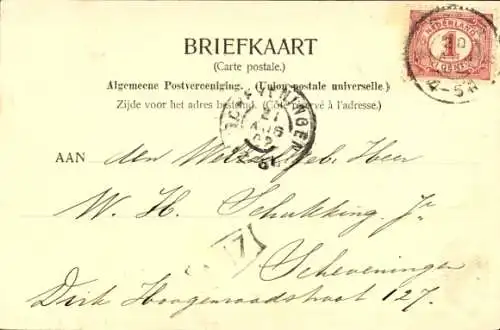 BRIEFKAART
(Carte postale.)
Algemeene Postvereeniging. (Union postale universelle.)
Zijde voor het adres bestemd. (Côté réservé à l'adresse.)
NEDERLAND
1
CENT
4-5N
SCHEVENINGEN
21
AUG
02
AAN den Weledelgeb. Heer
W. H. Schukking Jr
Scheveningen
Dirk Hoogenraadstraat 127.